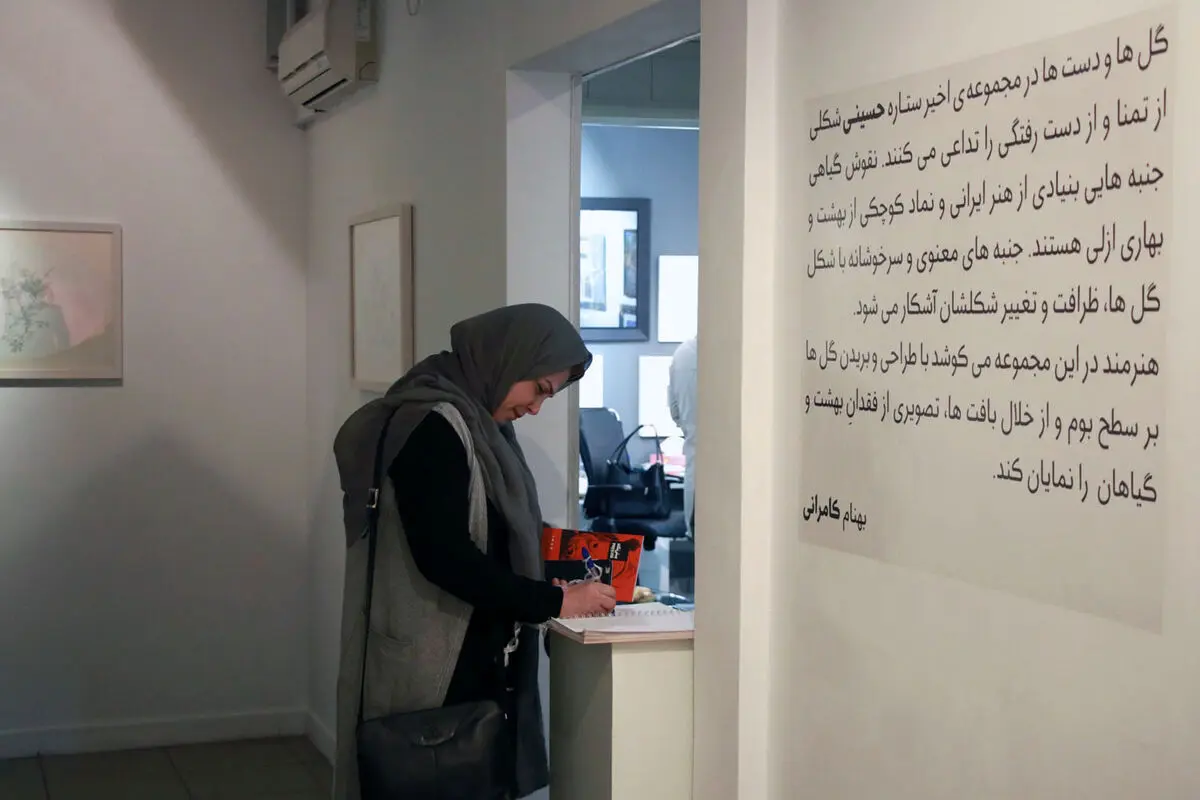 گل ها و دست ها در مجموعه‌ی اخیر ستاره حسینی شکلی
از تمنا و از دست رفتگی را تداعی می کنند. نقوش گیاهی
جنبه هایی بنیادی از هنر ایرانی و نماد کوچکی از بهشت و
بهاری ازلی هستند. جنبه های معنوی و سرخوشانه با شکل
گل ها، ظرافت و تغییر شکلشان آشکار می شود.
هنرمند در این مجموعه می کوشد با طراحی و بریدن گل ها
بر سطح بوم و از خلال بافت ها، تصویری از فقدانِ بهشت و
گیاهان را نمایان کند.
بهنام کامرانی